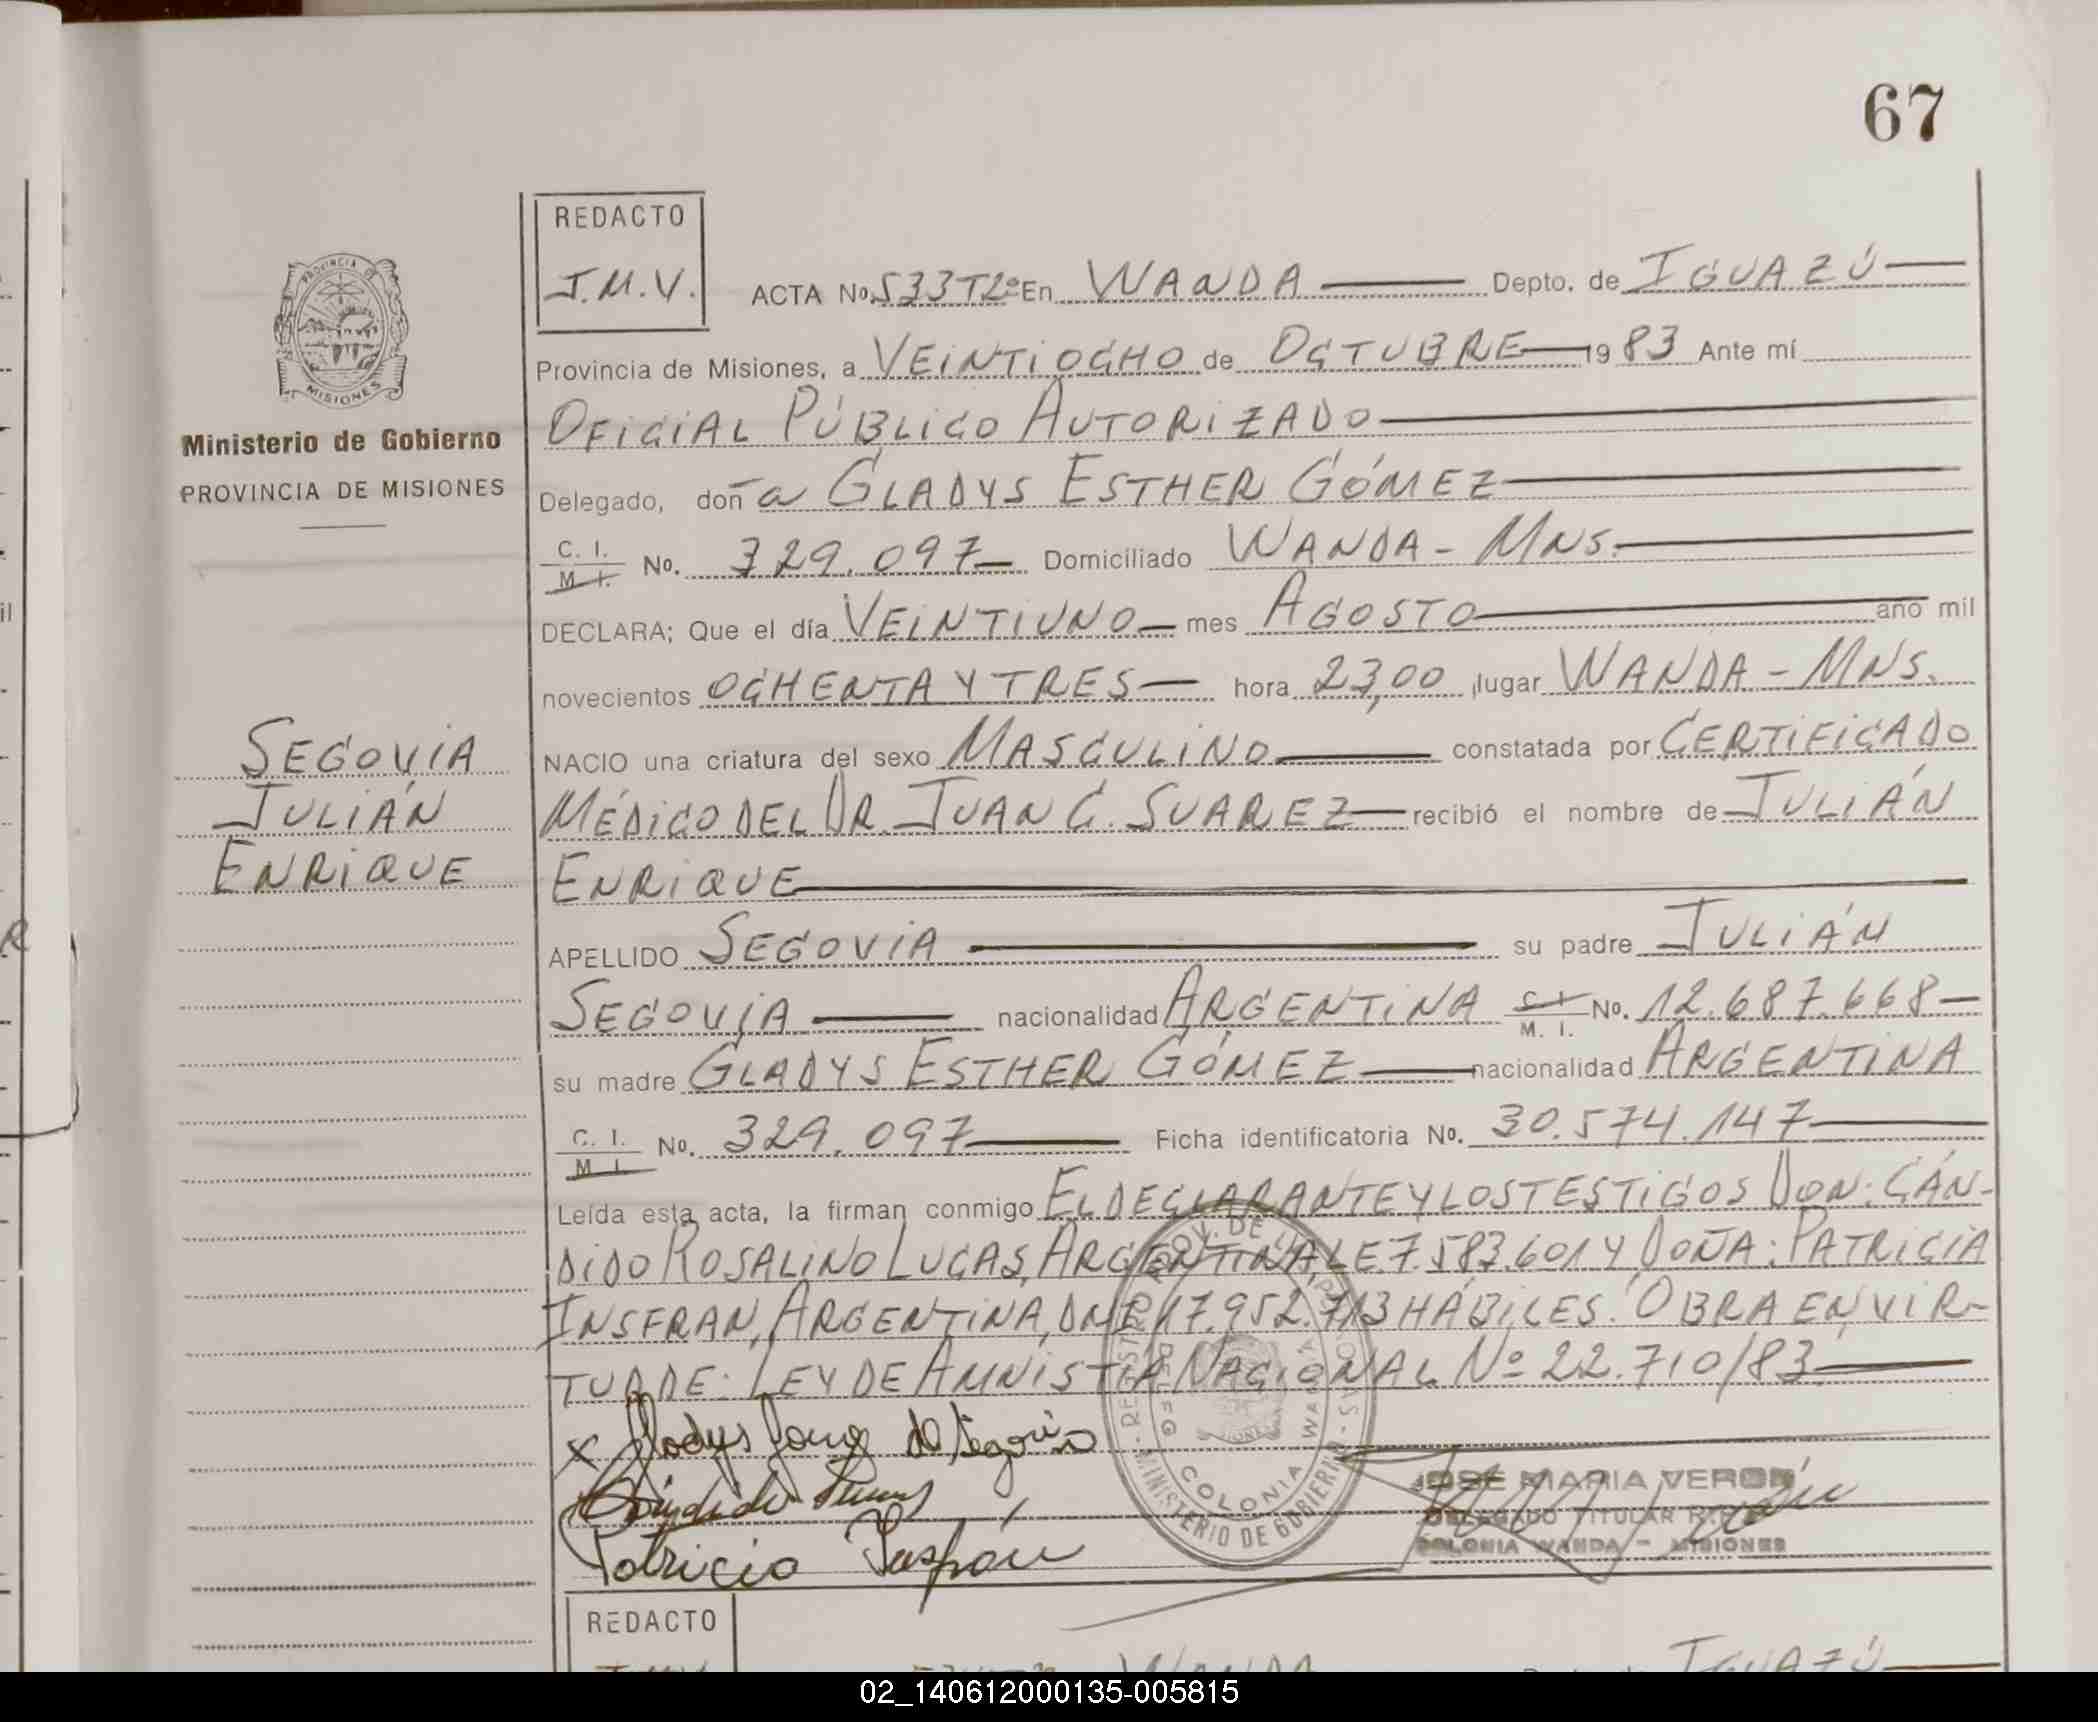 67
REDACTO
J.M.V.
PROVINCIA DE
MISIONES
Ministerio de Gobierno
PROVINCIA DE MISIONES
SEGOVIA
JULIÁN
ENRIQUE
ACTA No. 533 T2º En WANDA Depto. de IGUAZÚ
Provincia de Misiones, a VEINTIOCHO de OCTUBRE 19 83 Ante mí
OFICIAL PÚBLICO AUTORIZADO
Delegado, doña GLADYS ESTHER GÓMEZ
C. I.
M. I. No. 329.097 Domiciliado WANDA - MNS.
DECLARA; Que el día VEINTIUNO mes AGOSTO año mil
novecientos OCHENTA Y TRES hora 23,00 lugar WANDA - MNS.
NACIO una criatura del sexo MASCULINO constatada por CERTIFICADO
MÉDICO DEL DR. JUAN C. SUAREZ recibió el nombre de JULIÁN
ENRIQUE
APELLIDO SEGOVIA su padre JULIÁN
SEGOVIA nacionalidad ARGENTINA C. I. No. 12.687.668
M. I.
su madre GLADYS ESTHER GÓMEZ nacionalidad ARGENTINA
C. I.
M. I. No. 329.097 Ficha identificatoria No. 30.574.147
Leída esta acta, la firman conmigo EL DECLARANTE Y LOS TESTIGOS DON: CÁN-
DIDO ROSALINO LUCAS, ARGENTINA, LE. 7.583.601 Y DOÑA: PATRICIA
INSFRAN, ARGENTINA, DNI. 17.952.713 HÁBILES. OBRA EN VIR-
TUD DE: LEY DE AMNISTÍA NACIONAL Nº 22.710/83.
x Gladys Gomez de Segovia
Patricia Insfrán
COLONIA WANDA
MINISTERIO DE GOBIERNO
JOSE MARIA VERON
DELEGADO TITULAR R.P.
COLONIA WANDA - MISIONES
REDACTO
WANDA
IGUAZÚ
02_140612000135-005815